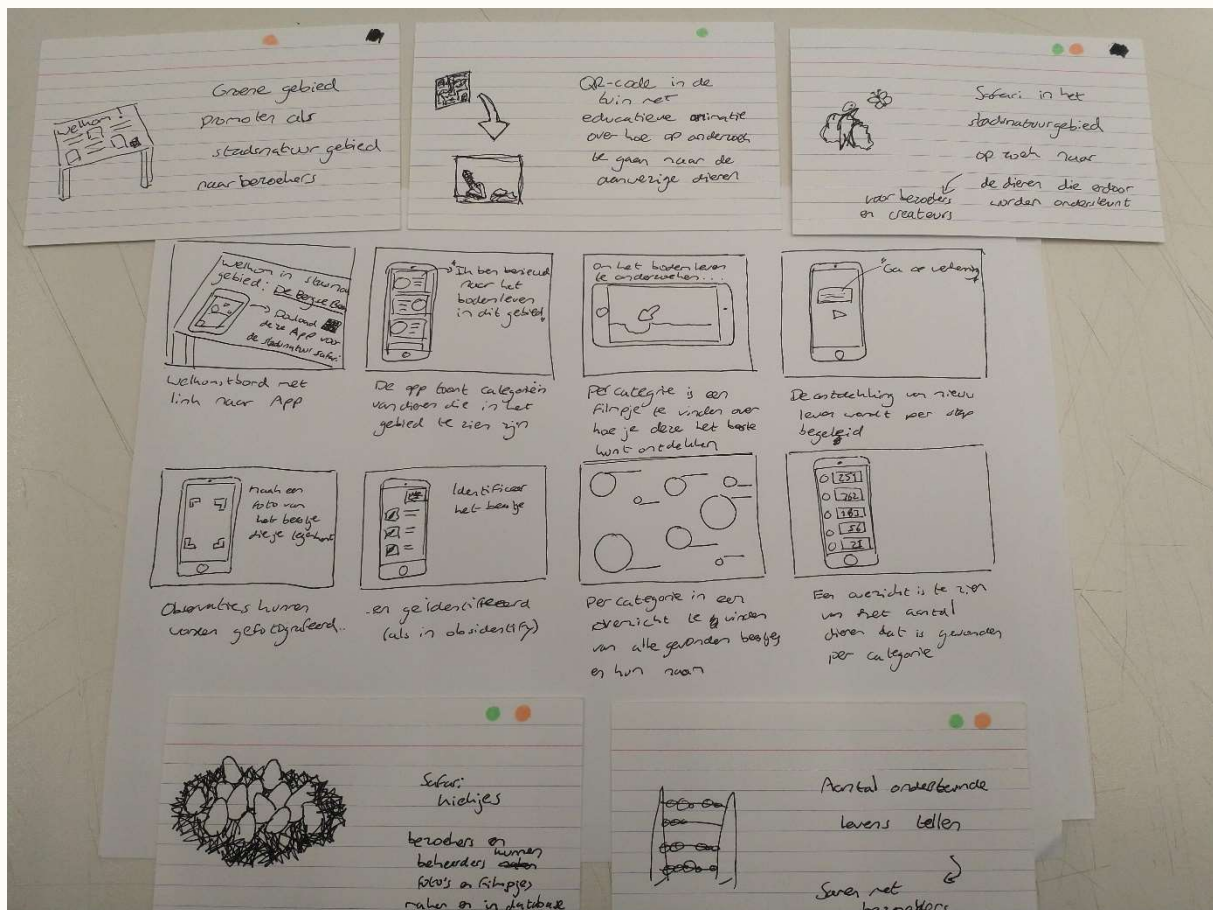 Welkom!
Groene gebied
promoten als
stadsnatuurgebied
naar bezoekers
QR-code in de
tuin met
educatieve animatie
over hoe op onderzoek
te gaan naar de
aanwezige dieren
Safari in het
stadsnatuurgebied
op zoek naar
de dieren die erdoor
worden ondersteunt
voor bezoekers
en createurs
Welkom in stadsna
gebied: De
Download
deze App voor
de stadsnatuur safari
Welkomstbord met
link naar App
"Ik ben benieuwd
naar het
bodenleven
in dit gebied"
De app toont categoriën
van dieren die in het
gebied te zien zijn
Om het bodenleven
te onderzoeken...
Per categrie is een
filmpje te vinden over
hoe je deze het beste
kunt ontdekken
"Ga op verkenning"
De ontdekking van nieuw
leven wordt per stap
begeleid
Maak een
foto van
het beestje
die je tegenkomt
Observaties kunnen
worden gefotografeerd..
Identificeer
het beestje
..en geïdentificeerd
(als in obsidentify)
Per categorie in een
overzicht te vinden
van alle gevonden beestjes
en hun naam
251
262
183
56
21
Een overzicht is te zien
van het aantal
dieren dat is gevonden
per categorie
Safari
kiekjes
bezoekers en
beheerders kunnen
foto's en filmpjes
maken en in database
Aantal ondersteunde
levens tellen
Samen met
bezoekers